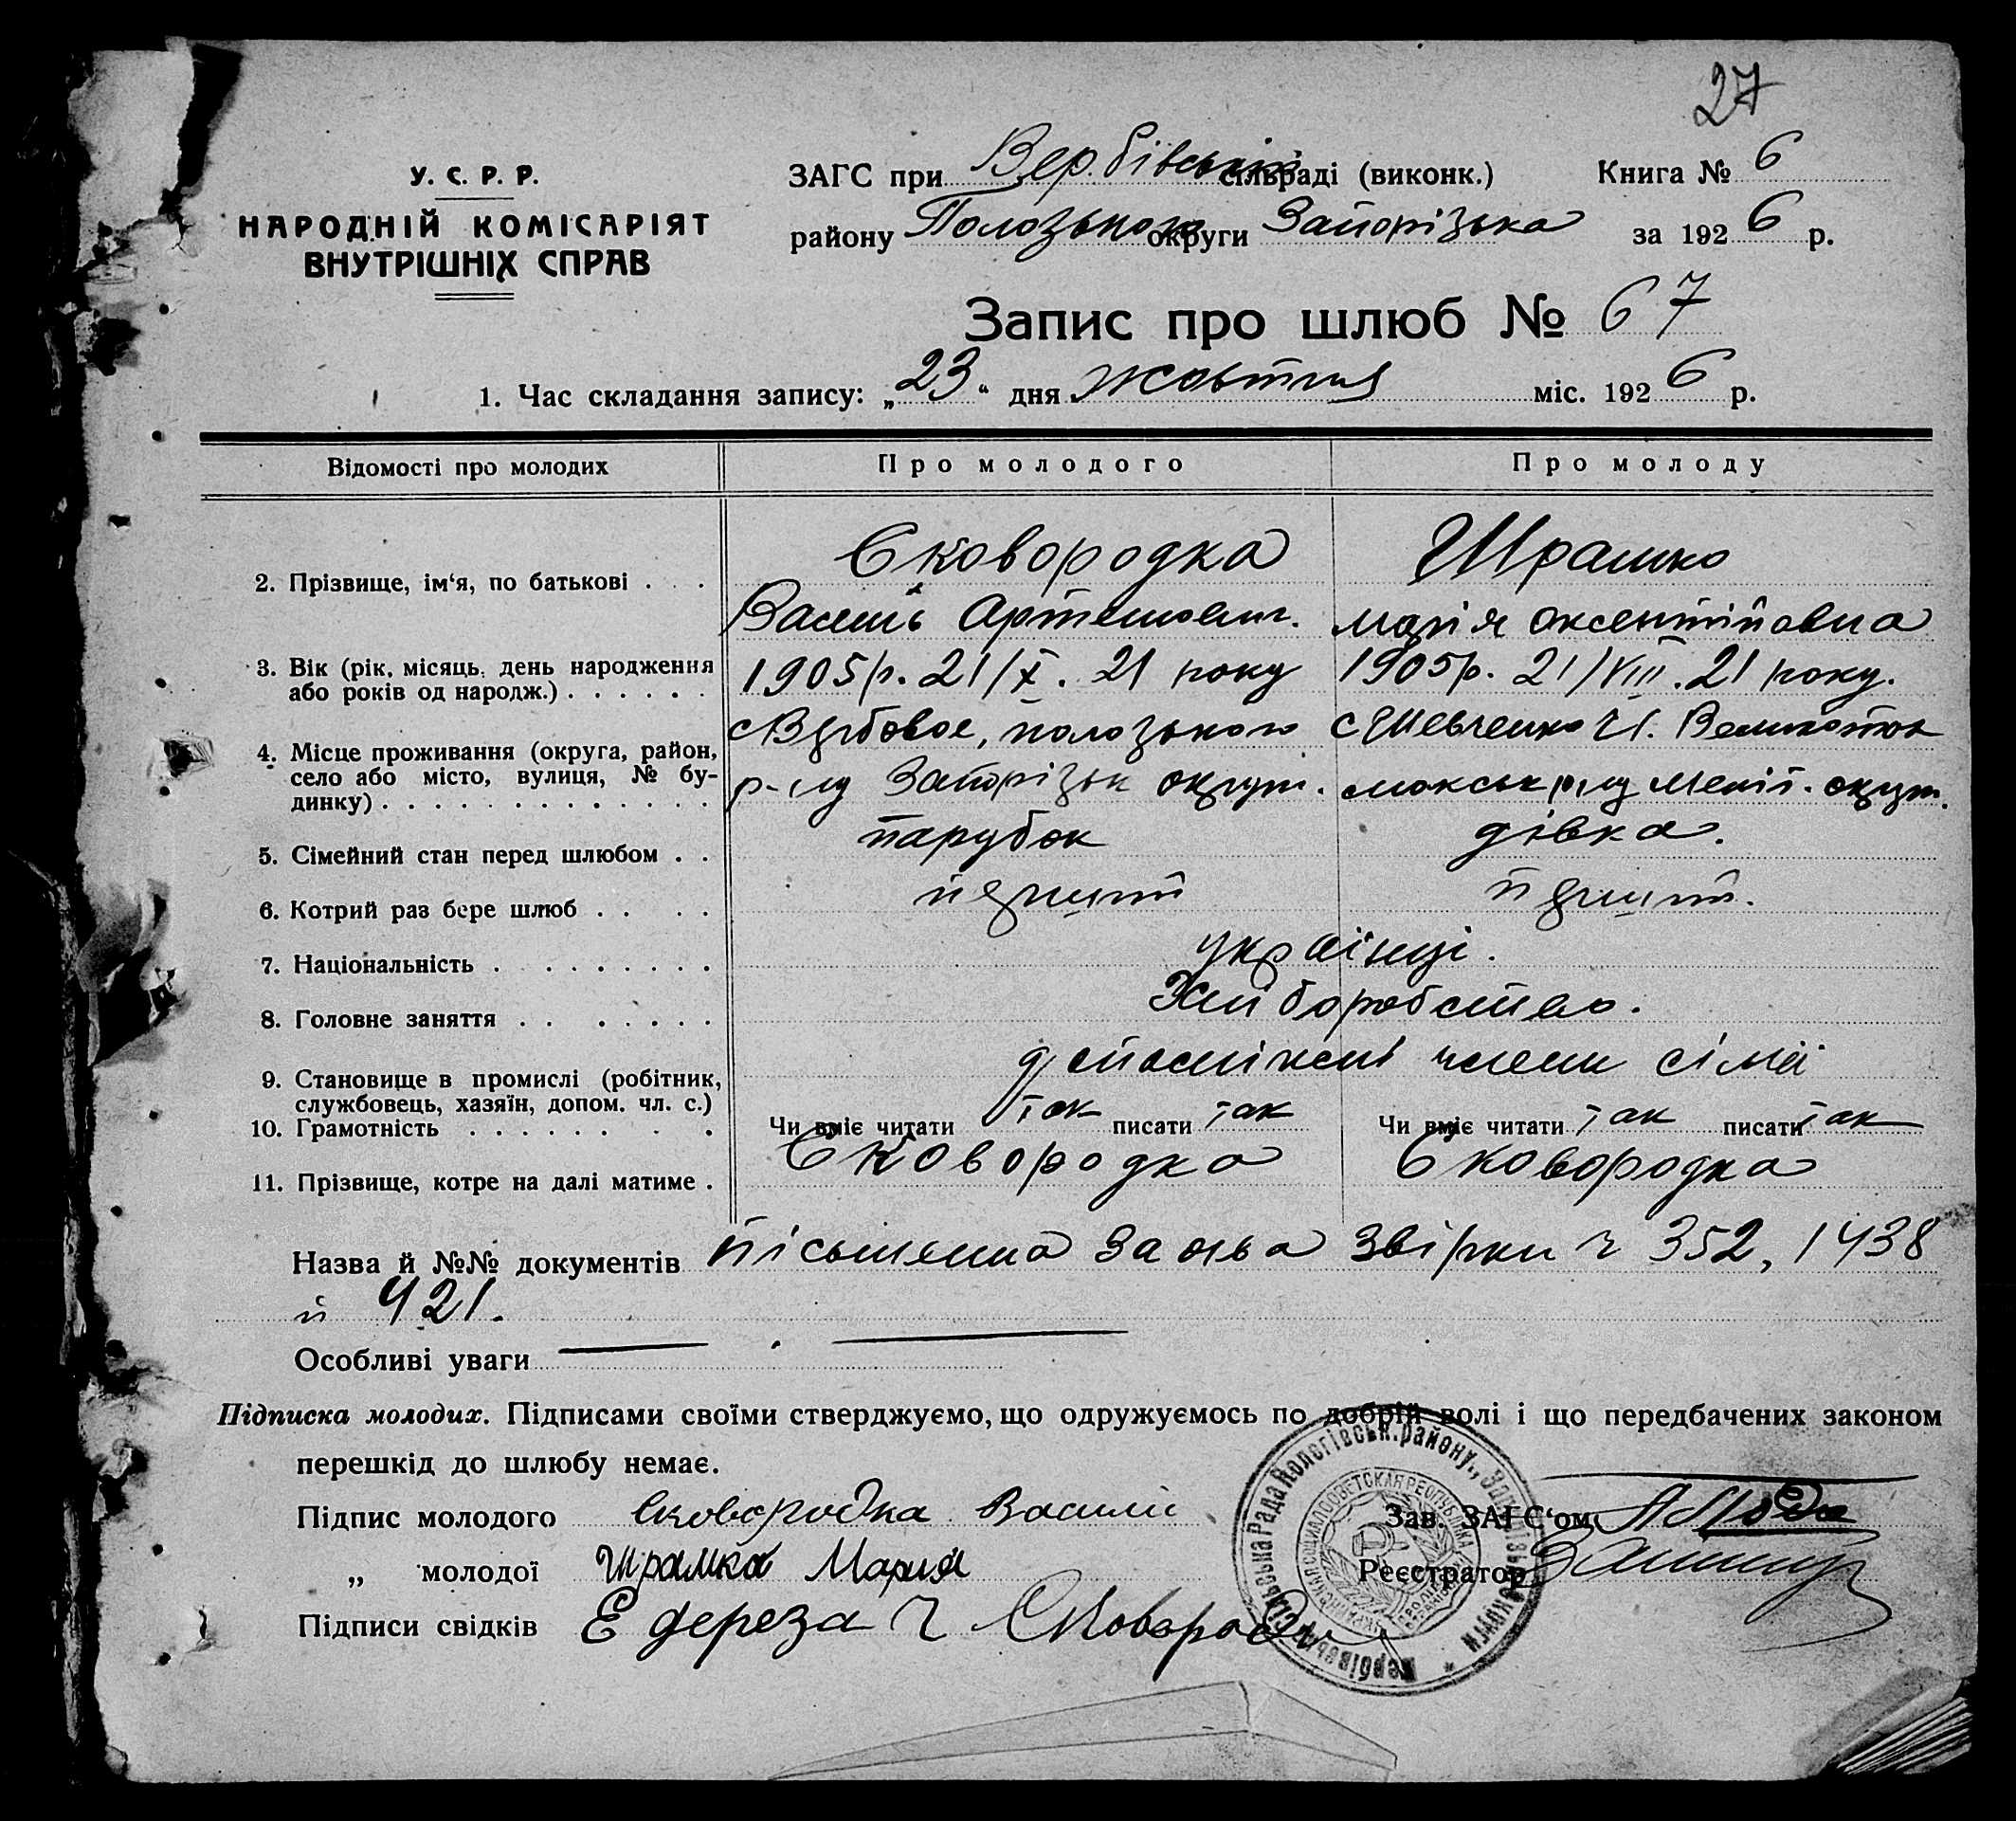 27
У. С. Р. Р.
НАРОДНІЙ КОМІСАРІЯТ
ВНУТРІШНІХ СПРАВ
ЗАГС при Вербівській сільраді (виконк.) Книга № 6
району Полозького округи Запорізька за 1926 р.
Запис про шлюб № 67
1. Час складання запису: „23“ дня жовтня міс. 1926 р.
Відомості про молодих Про молодого Про молоду
2. Прізвище, ім‘я, по батькові . . . Сковородка Шрамко
Василь Артемович. Марія Оксентіївна
3. Вік (рік, місяць, день народження або років од народж.) . . . . . . 1905 р. 21/X. 21 року 1905 р. 21/VIII. 21 року.
4. Місце проживання (округа, район, село або місто, вулиця, № будинку) . . . . . . . . . . . . . с Вербовое, полозького с Шевченко
р-ну Запорізьк округи. Меліт. округи.
5. Сімейний стан перед шлюбом . . парубок дівка.
6. Котрий раз бере шлюб . . . . перший перший.
7. Національність . . . . . . . . . українці.
8. Головне заняття . . . . . . . . Хліборобство.
9. Становище в промислі (робітник, службовець, хазяїн, допом. чл. с.) члени сімї
10. Грамотність . . . . . . . . Чи вміє читати так писати так Чи вміє читати так писати так
11. Прізвище, котре на далі матиме . Сковородка Сковородка
Назва й №№ документів пісьменна заява звірки ч 352, 1438
й 421.
Особливі уваги
Підписка молодих. Підписами своїми стверджуємо, що одружуємось по добрій волі і що передбачених законом
перешкід до шлюбу немає.
Підпис молодого Сковородка Василь Зав. ЗАГС‘ом
„ молодої Шрамка Мария Реєстратор
Підписи свідків Е Дереза Ч Сковородка
Вербівська сільська Рада Пологівськ. району, Запорізьк. округи